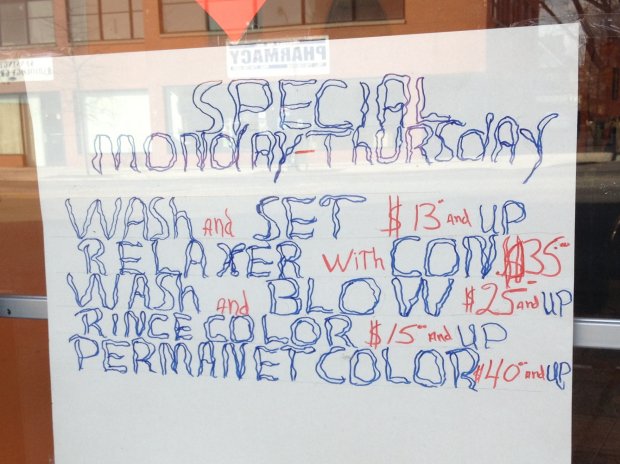 PHARMACY
SPECIAL
MONDAY-THURSDAY
WASH AND SET $13 AND UP
RELAXER WITH CON $35
WASH AND BLOW $25 AND UP
RINCE COLOR $15 AND UP
PERMANET COLOR $40 AND UP